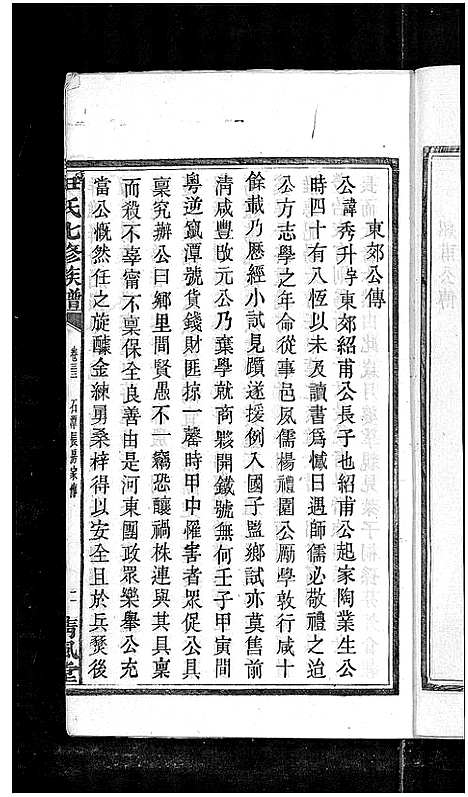 東郊公傳
公諱秀升字東郊紹甫公長子也紹甫公起家陶業生公
時四十有八恆以未及讀書爲憾日遇師儒必敬禮之迨
公方志學之年命從事邑夙儒楊禮園公勵學敦行咸十
餘載乃歷經小試見躓遂援例入國子監鄉試亦莫售前
清咸豐改元公乃棄學就商夥開鐵號無何壬子甲寅間
粵逆竄潭號貨錢財匪掠一罄時甲中罹害者眾促公具
稟究辦公曰鄉里間賢愚不一竊恐釀禍株連與其具稟
而殺不辜甯不稟保全良善由是河東團政眾樂舉公充
當公慨然任之旋醵金練勇桑梓得以安全且於兵燹後
氏七修族譜
卷三三
石潭長房家傳
二
清風堂
紹甫公傳